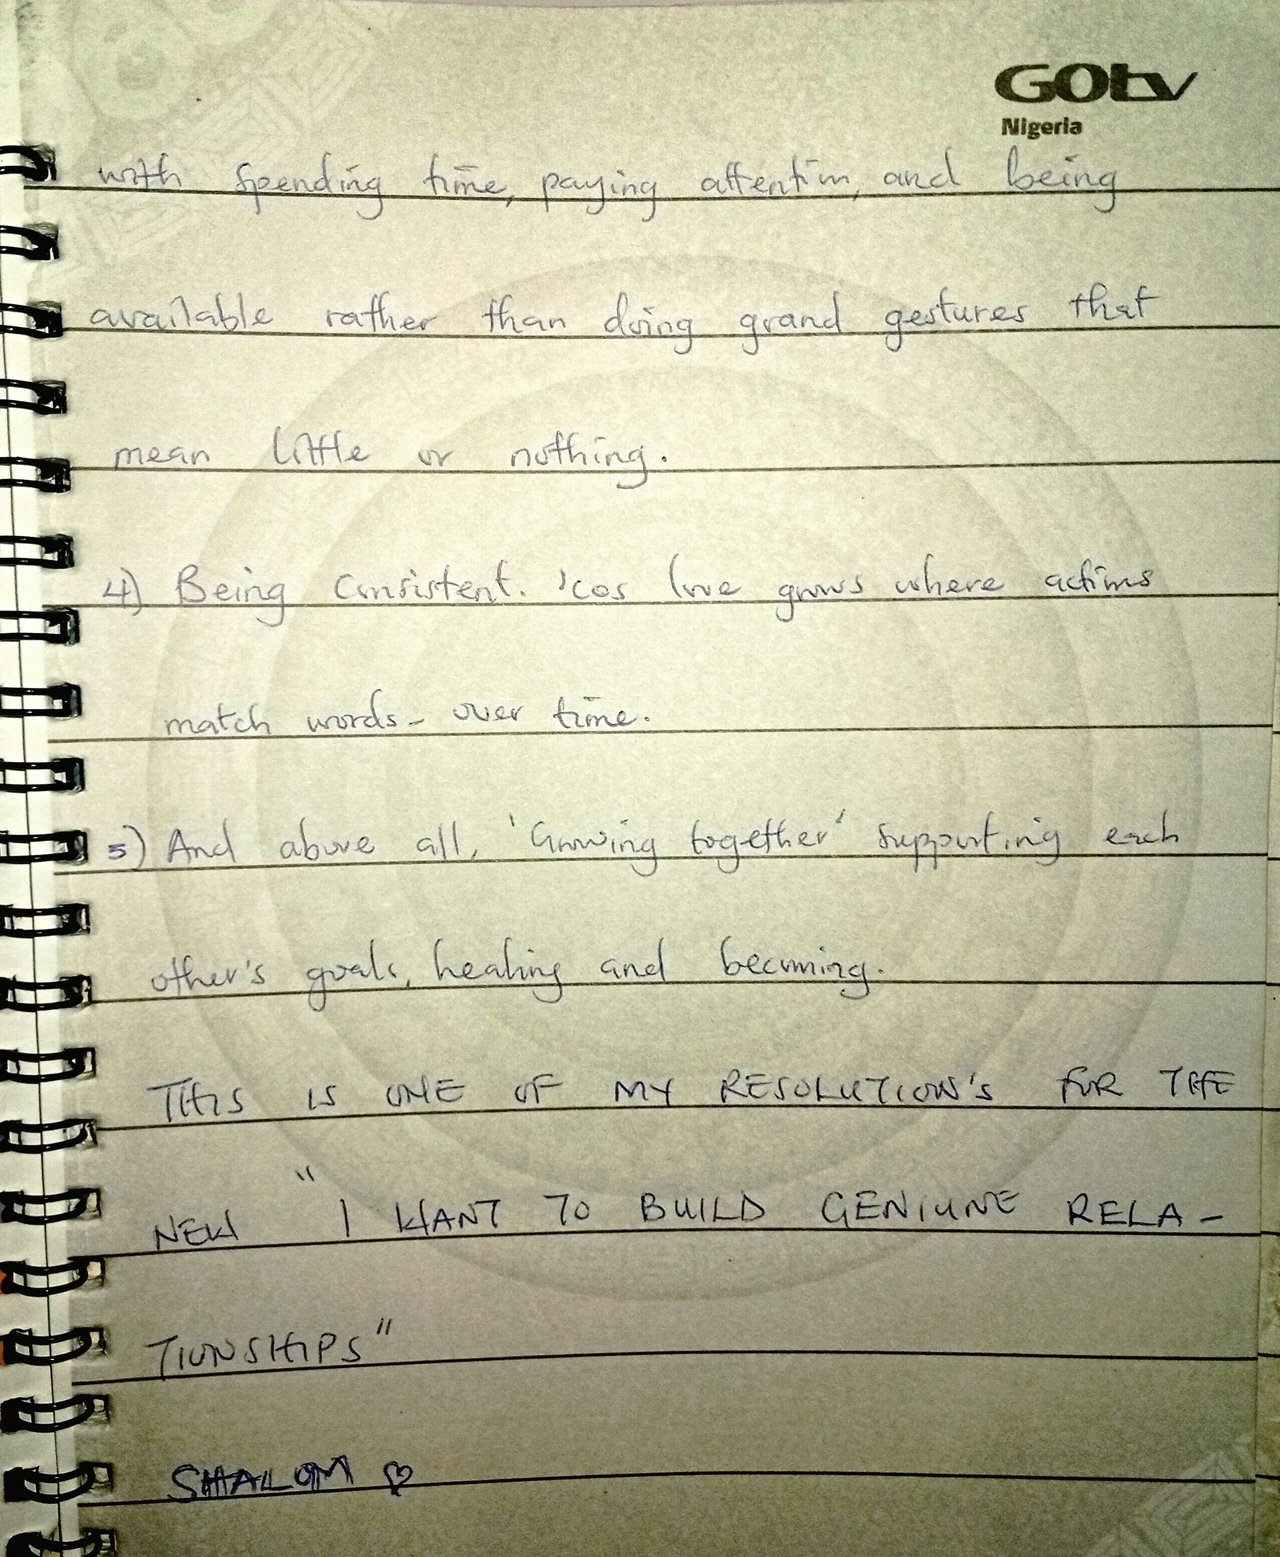 GOtv
Nigeria
with spending time, paying attention, and being
available rather than doing grand gestures that
mean little or nothing.
4) Being Consistent. 'cos love grows where actions
match words - over time.
5) And above all, 'Growing together' supporting each
other's goals, healing and becoming.
THIS IS ONE OF MY RESOLUTION'S FOR THE
NEW "I WANT TO BUILD GENIUNE RELA-
TIONSHIPS"
SHALOM ♡